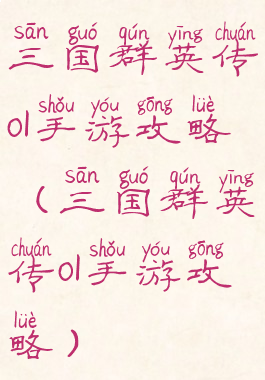 sān guó qún yīng chuán
三国群英传
shǒu yóu gōng lüè
01手游攻略
sān guó qún yīng
(三国群英
chuán shǒu yóu gōng
传01手游攻
lüè
略)